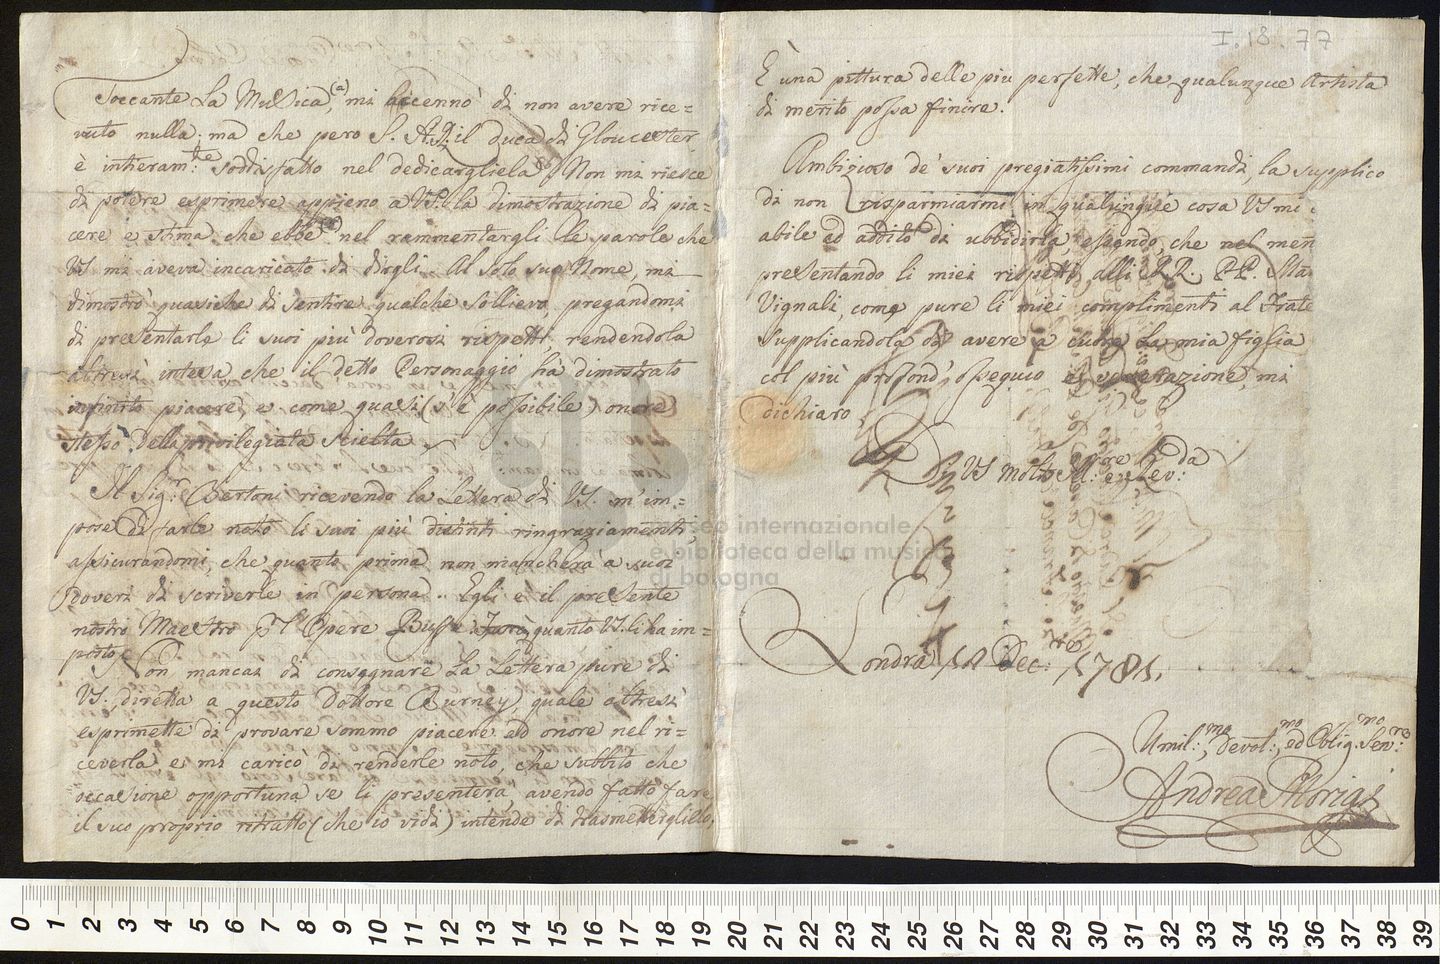 I. 18. 77
Toccante La Musica, (a) mi accennò di non avere rice=
vuto nulla: ma che però S. A. R. il Duca di Gloucester,
è intieram:te soddisfatto nel dedicargliela. Non mi riesce
di potere esprimere appieno a VS. la dimostrazione di pia=
cere e stima che ebbe nel rammentargli le parole che
VS. mi aveva incaricato di dirgli. Al solo suo Nome, mi
dimostrò quasiche di sentire qualche sollievo, pregandomi
di presentarle li suoi più doverosi rispetti, rendendola
altresì intesa che il detto Personaggio hà dimostrato
infinito piacere, e come quasi (s'è possibile) onore
stesso della privilegiata scielta.
Il Sig:r Bertoni ricevendo la Lettera di VS. m'im=
pose di farle noto li suoi più distinti ringraziamenti,
assicurandomi, che quanto prima non mancherà à suoi
doveri di scriverle in persona. Egli è il presente
nostro Maestro Opere quanto VS. li ha im=
posto. Non mancai di consegnare La Lettera pure di
VS., diretta a questo Dottore Burney, quale altresì
espresse di provare sommo piacere ed onore nel ri=
ceverla e mi caricò di renderle noto, che subbito che
occasione opportuna se li presenterà avendo fatto fare
il suo proprio ritratto (che io vidi) intende di trasmetterglielo,
È una pittura delle più perfette, che qualunque Artista
di merito possa finire.
Ambizioso de' suoi pregiatissimi commandi, la supplico
di non risparmiarmi in qualunque cosa VS mi
abile ed addito di ubbidirla, essendo, che nel men
presentando li miei rispetti, alli RR. PP.
Vignali, come pure li miei complimenti al Frate
Supplicandola di avere à cuore La mia figlia
col più profond'ossequio e venerazione, mi
dichiaro
Di VS Molt'Ill:re e Rev:da
Londra Dec: 1781.
Umil:mo, devot:mo, ed Oblig:mo Ser:re
Andrea Morigi
museo internazionale
e biblioteca della musica
di bologna
0 1 2 3 4 5 6 7 8 9 10 11 12 13 14 15 16 17 18 19 20 21 22 23 24 25 26 27 28 29 30 31 32 33 34 35 36 37 38 39